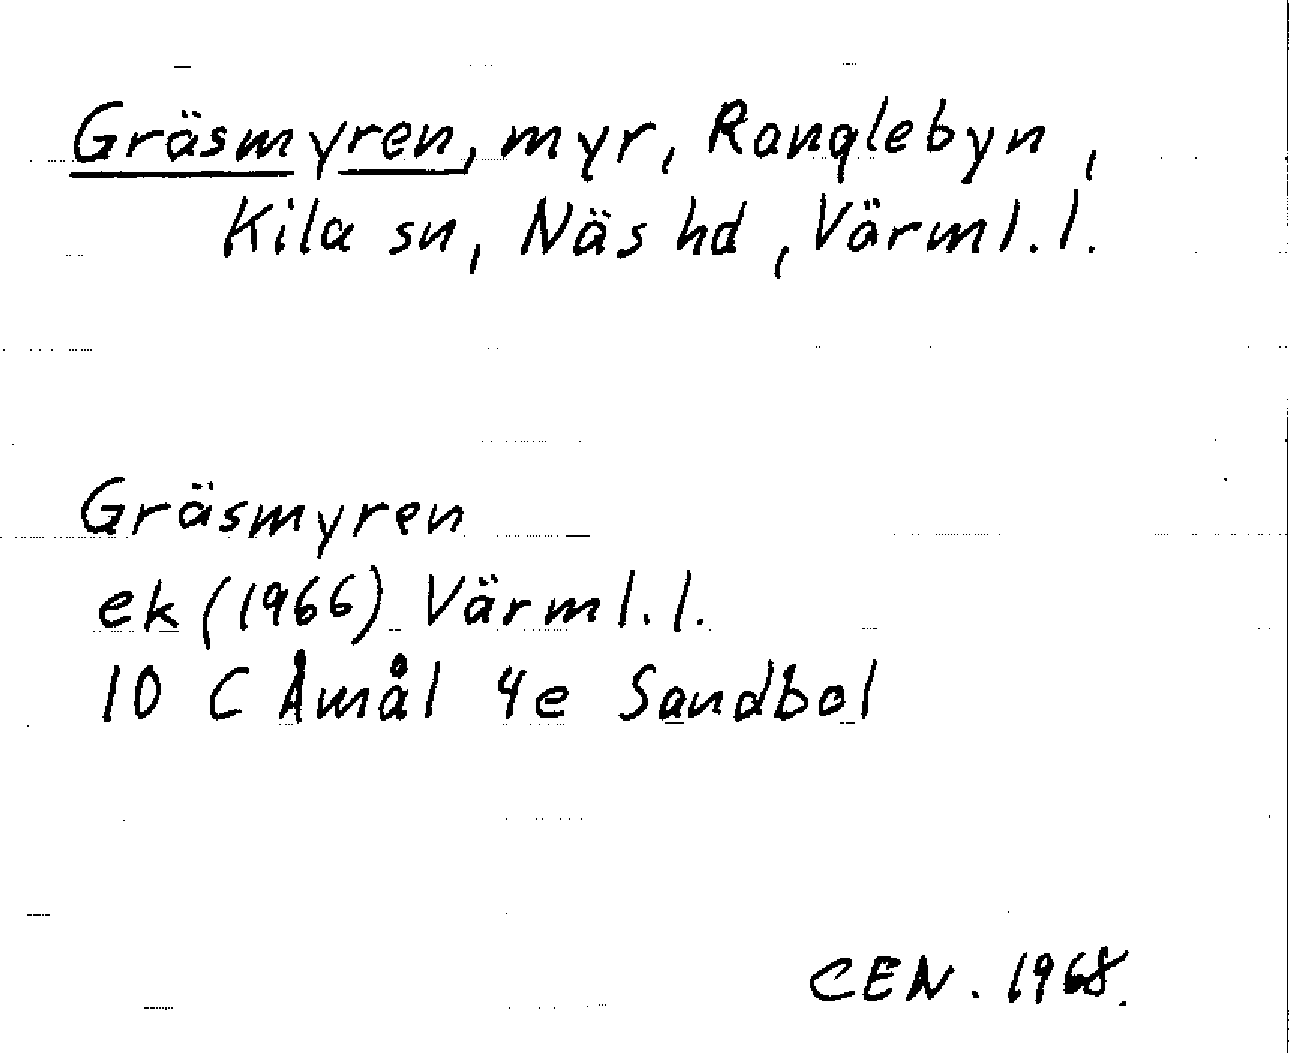 Gräsmyren, myr, Ranglebyn,
Kila sn, Näs hd, Värml.l.
Gräsmyren
ek (1966) Värml.l.
10 C Åmål 4e Sandbol
CEN. 1968.